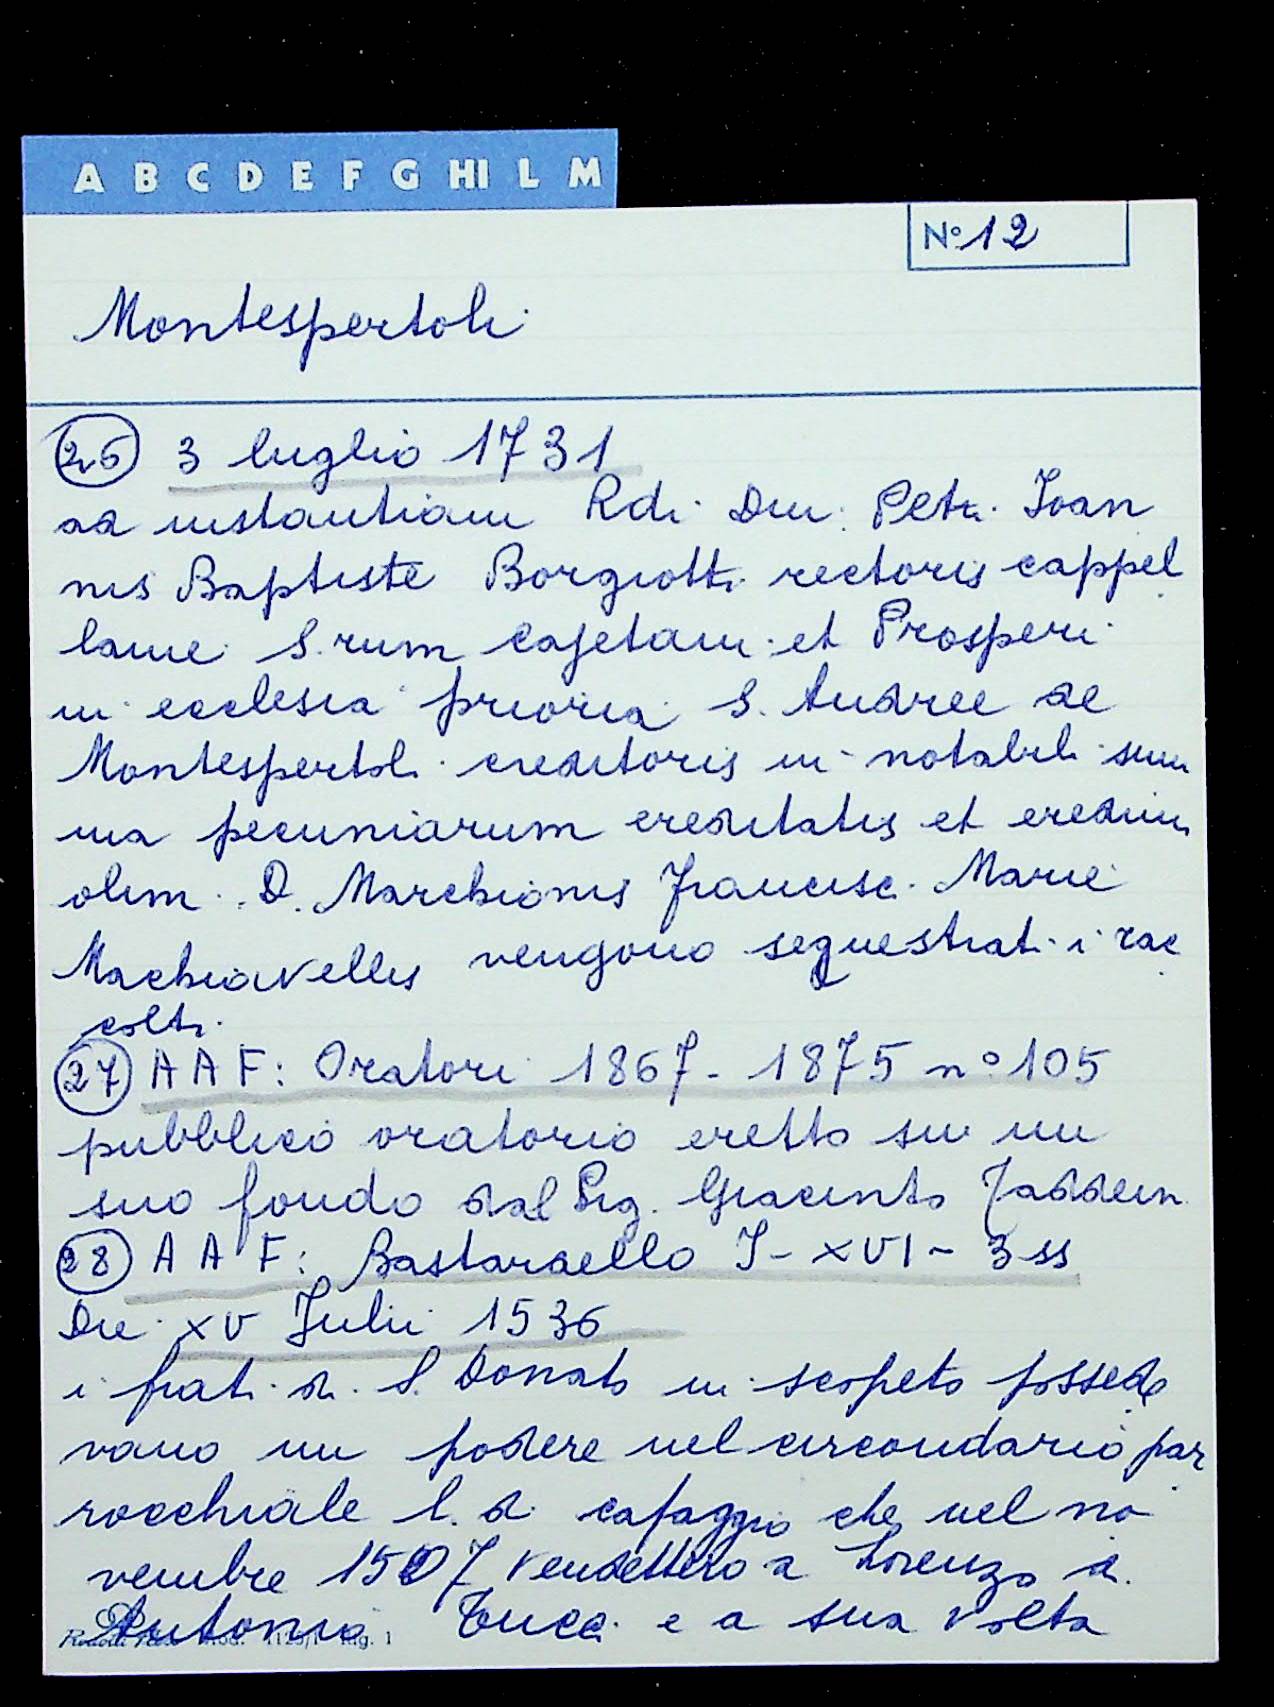 A B C D E F G HI L M
N° 12
Montespertoli
26 3 luglio 1731
ad instantiam Rdi Dni: Petri Ioan
nis Baptiste Borgiotti rectoris cappel
lanie S.rum Cajetani et Prosperi
in ecclesia prioria S. Andree de
Montespertoli creditoris in notabili sum
ma pecuniarum ereditatis et eredum
olim D. Marchionis Francisc. Marie
Machiavellis vengono sequestrati i rac
colti.
27 A A F: Oratori 1867 - 1875 n° 105
pubblico oratorio eretto su un
suo fondo dal Sig. Giacinto Taddein
28 A A F: Bastardello I - XVI - 3 ss
Die XV Julii 1536
i frati di S. Donato in scopeto possede
vano un podere nel circondario par
rocchiale l. d. cafaggio che nel no
vembre 1507 vendettero a Lorenzo di
Antonio Tucci e a sua volta